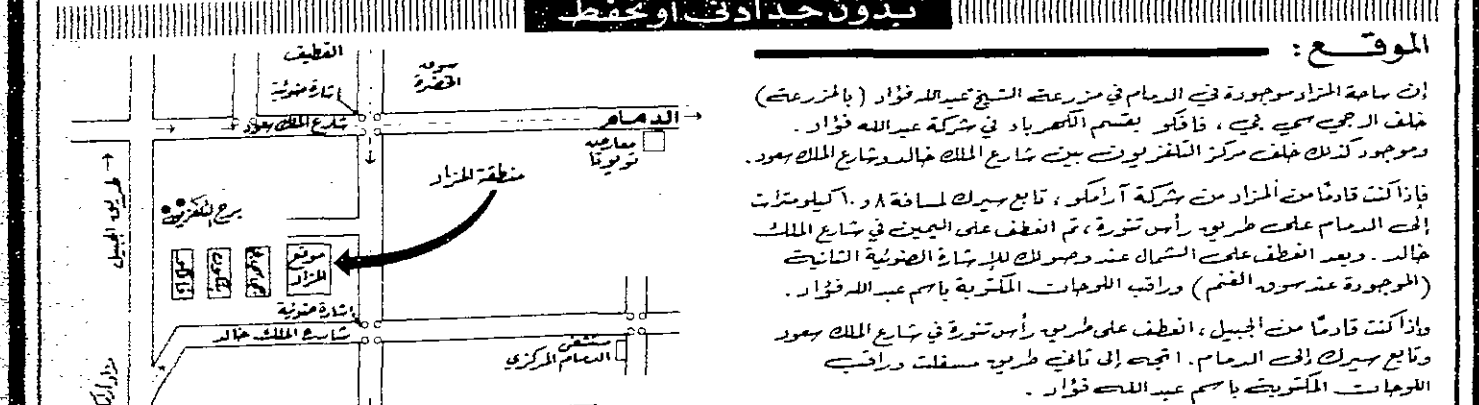 بدون حد أدنى أو تحفظ
الموقع :
إن ساحة المزاد موجودة في الدمام في مزرعة الشيخ عبدالله فؤاد ( بالمزرعة )
خلف الـ جي سي بي ، فافكو بقسم الكهرباء في شركة عبدالله فؤاد .
وموجود كذلك خلف مركز التلفزيون بين شارع الملك خالد وشارع الملك سعود .
فإذا كنت قادمًا من المزاد من شركة آرامكو ، تابع سيرك لمسافة ٨ و ١٠ كيلومترات
إلى الدمام على طريق رأس تنورة ، ثم انعطف على اليمين في شارع الملك
خالد . وبعد انعطف على الشمال عند وصولك للإشارة الضوئية الثانية
( الموجودة عند سوق الغنم ) وراقب اللوحات المكتوبة باسم عبدالله فؤاد .
وإذا كنت قادمًا من الجبيل ، انعطف على طريق رأس تنورة في شارع الملك سعود
وتابع سيرك إلى الدمام . اتجه إلى ثاني طريق مسفلت وراقب
اللوحات المكتوبة باسم عبدالله فؤاد .
القطيف
سوق
الخضرة
إشارة ضوئية
شارع الملك سعود
الدمام
معارض
تويوتا
منطقة المزاد
طريق الجبيل
برج التلفزيون
موقع
المزاد
إشارة ضوئية
شارع الملك خالد
مستشفى
الدمام المركزي